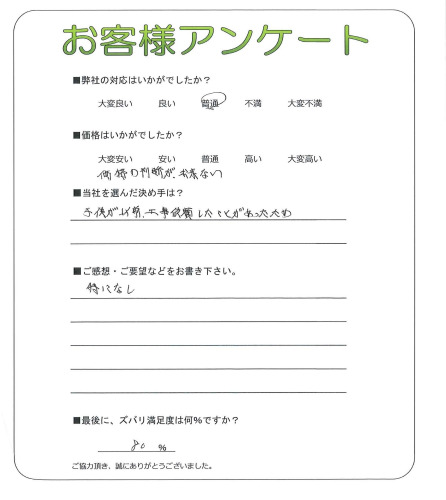 お客様アンケート
■弊社の対応はいかがでしたか？
大変良い 良い 普通 不満 大変不満
■価格はいかがでしたか？
大変安い 安い 普通 高い 大変高い
価格の判断が、出来ない
■当社を選んだ決め手は？
子供が以前、工事依頼したことがあったため
■ご感想・ご要望などをお書き下さい。
特になし
■最後に、ズバリ満足度は何%ですか？
80 %
ご協力頂き、誠にありがとうございました。